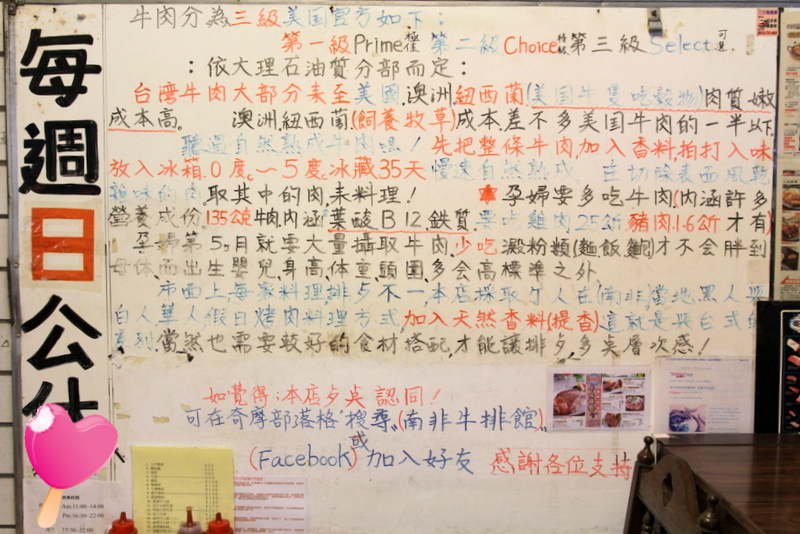 每週日公休
牛肉分為三級美国官方如下：
第一級Prime極佳 第二級Choice特級 第三級Select可選.
：依大理石油質分部而定：
台灣牛肉大部分来至美國.澳洲.紐西蘭(美国牛隻吃穀物)肉質嫩
成本高。 澳洲.紐西蘭.(飼養牧草)成本.差不多美国牛肉的一半以下.
聽過自然熟成牛肉嗎！先把整條牛肉,加入香料,拍打入味
放入冰箱.0度c～5度c冰藏35天 慢速自然熟成 在切除表面風乾
的肉,取其中的肉,来料理！ 孕婦要多吃牛肉(內涵許多
營養成份.135公克牛肉.內涵葉酸B12.鉄質.要吃雞肉25公斤豬肉1.6公斤才有)
孕婦第5个月就要大量攝取牛肉.少吃澱粉類(麵.飯.麵)才不会胖到
母体而出生嬰兒.身高.体重頭圍.多会高標準之外
市面上每家料理排歺不一.本店採取.(南非)當地黑人與
白人華人假日烤肉料理方式,加入天然香料(提香)這就是與台式的
差別,當然也需要較好的食材搭配,才能讓排歺,多美層次感！
如覺得；本店歺美認同！
可在奇摩部落格"搜尋"(南非牛排館)。
或
(Facebook)加入好友 感謝各位支持
營業時間
Am:11:00~14:00
Pm:16:30~22:00
15:30~22:00